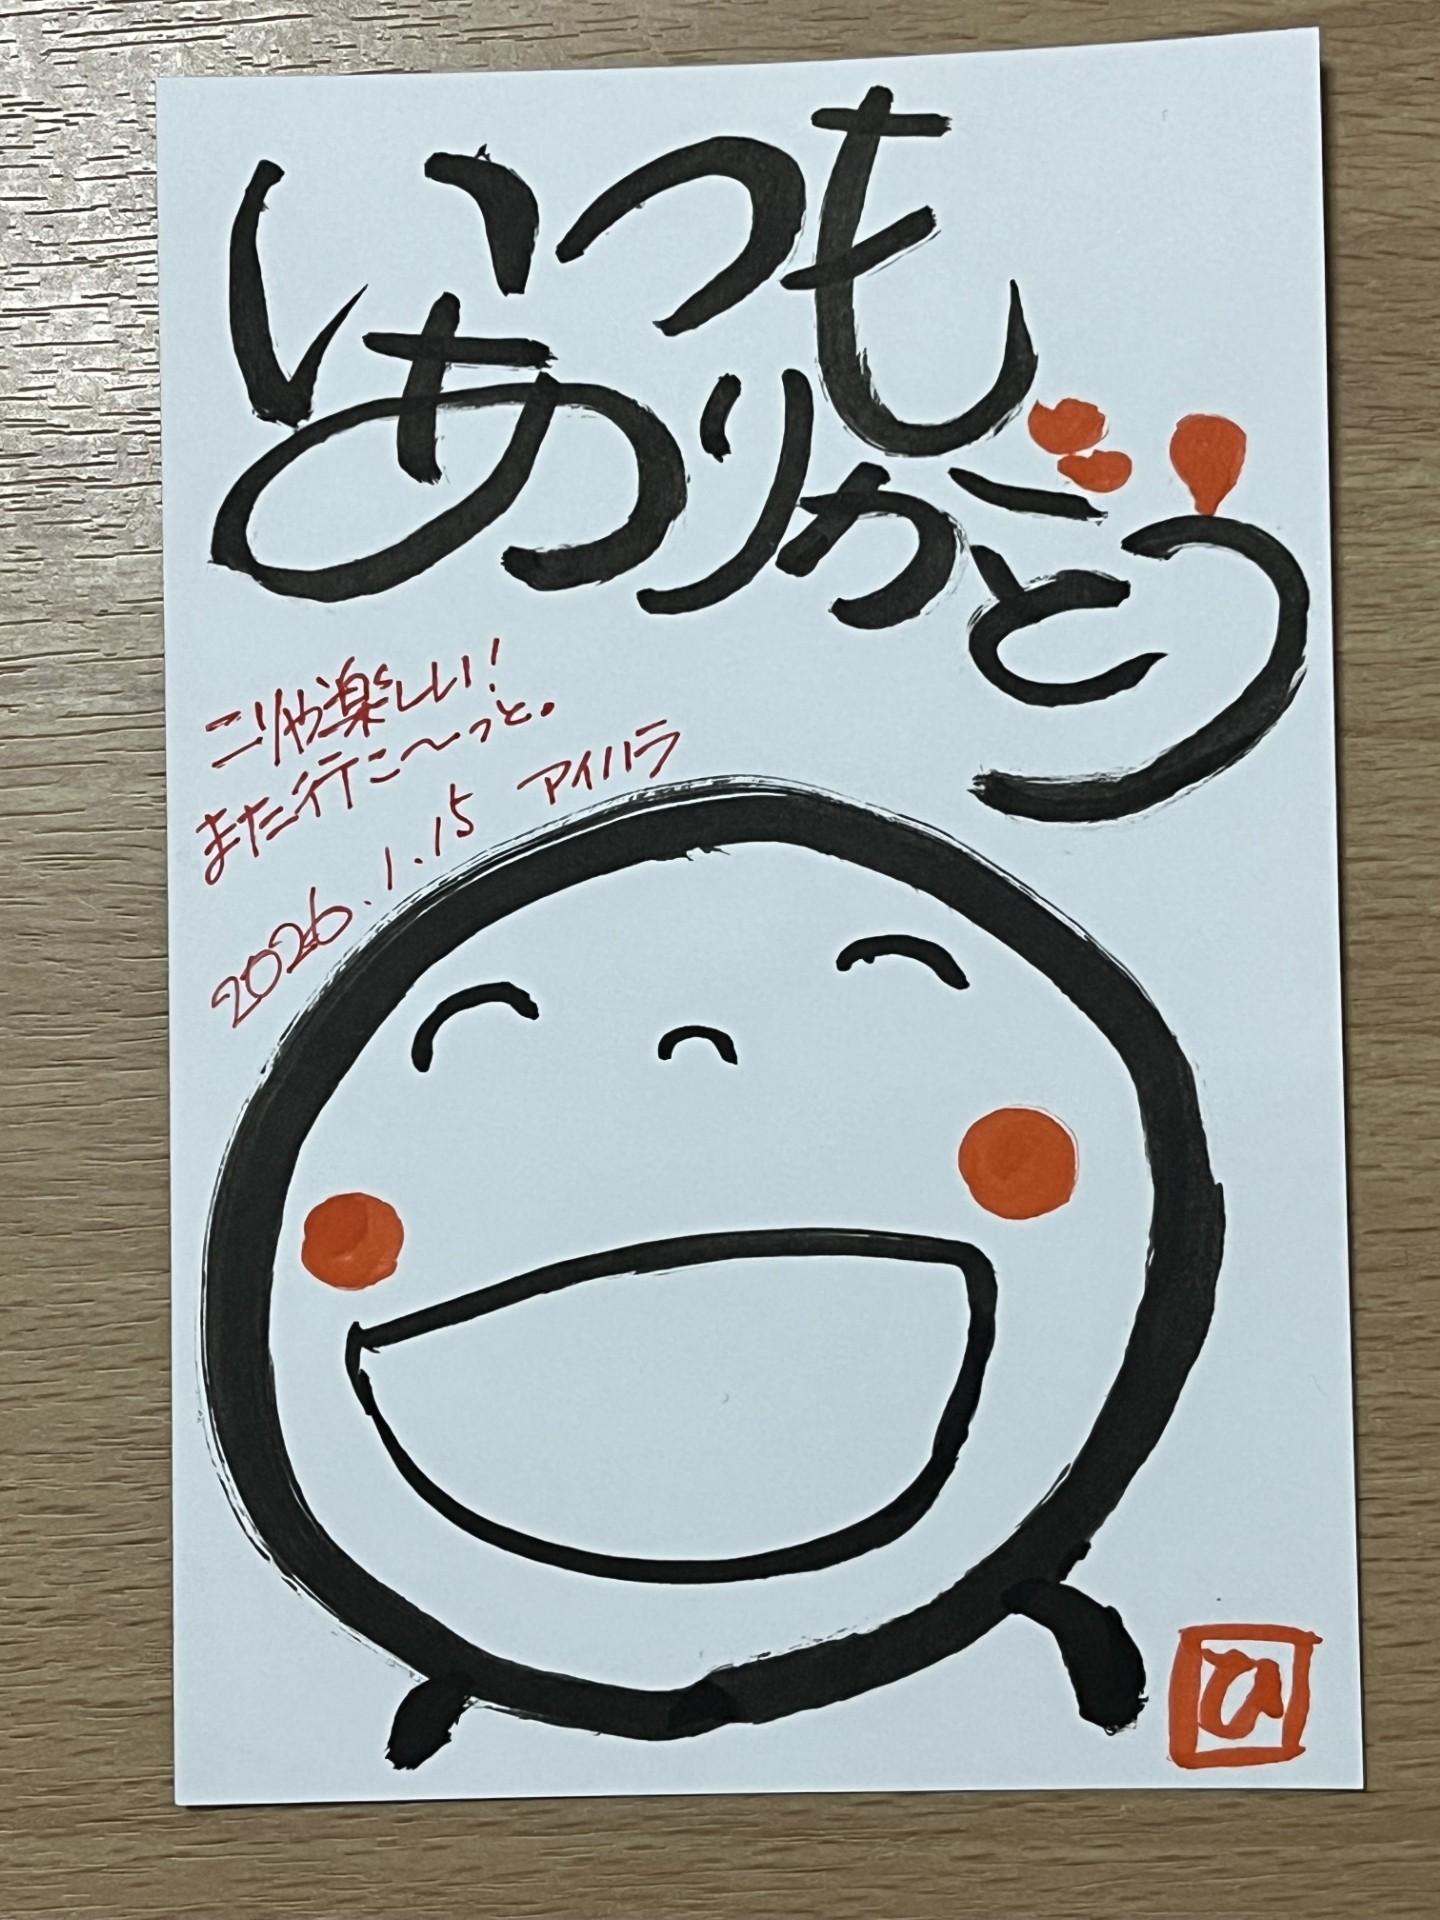 いつも
ありがとう
こりゃ楽しい!
また行こ〜っと。
2026.1.15 アイハラ
ひ